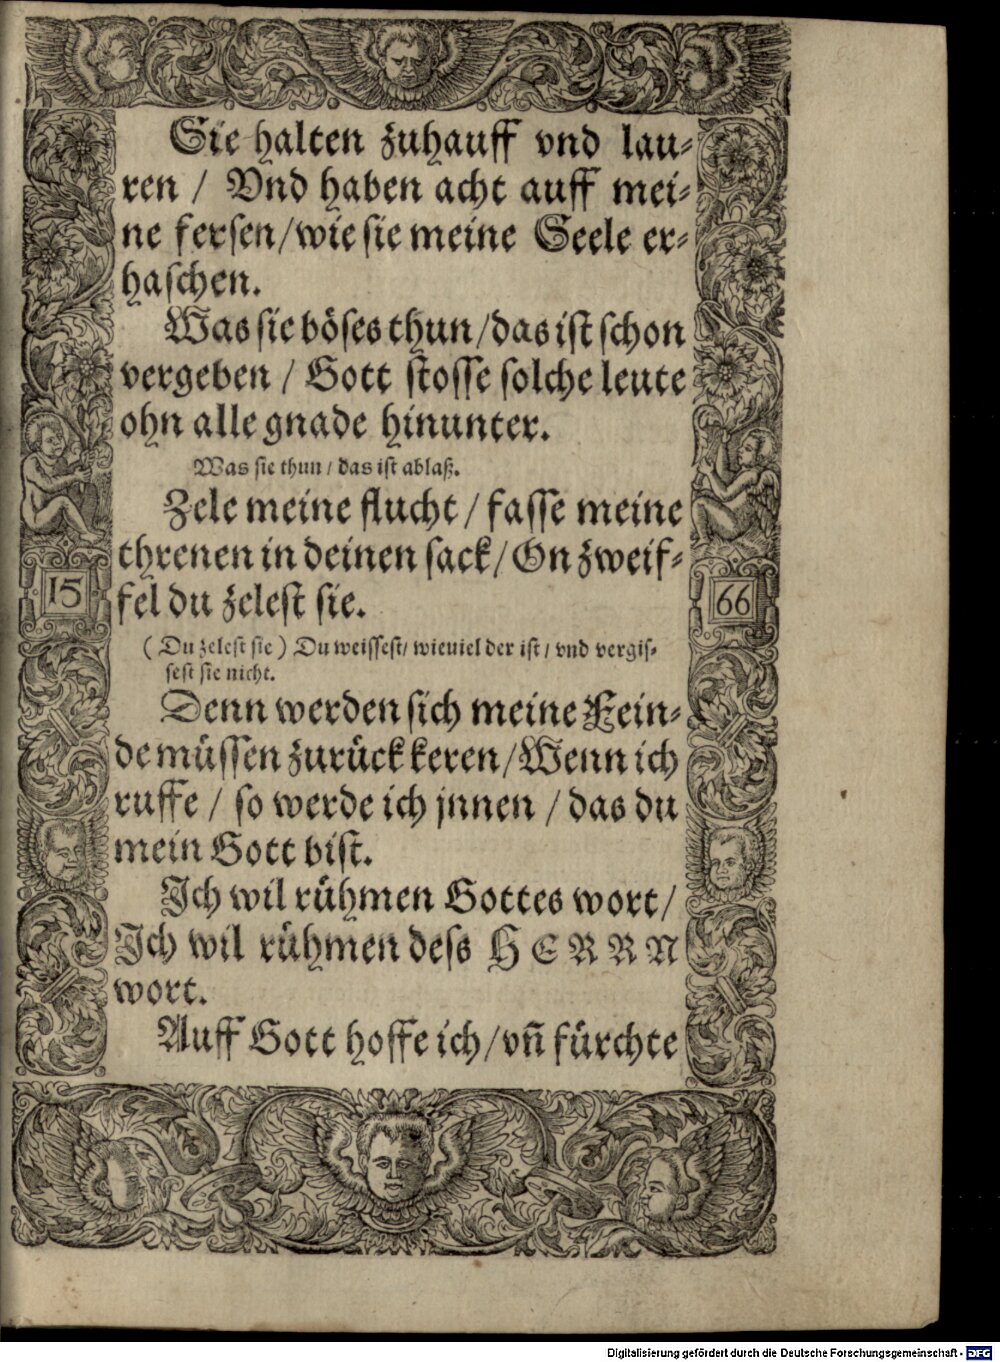 Sie halten zuhauff vnd lau-
ren / Vnd haben acht auff mei-
ne fersen / wie sie meine Seele er-
haschen.
Was sie böses thun / das ist schon
vergeben / Gott stosse solche leute
ohn alle gnade hinunter.
Was sie thun / das ist ablaß.
Zele meine flucht / fasse meine
threnen in deinen sack / On zweif-
fel du zelest sie.
15
66
( Du zelest sie ) Du weissest / wieuiel der ist / vnd vergis-
sest sie nicht.
Denn werden sich meine Fein-
de müssen zurück keren / Wenn ich
ruffe / so werde ich jnnen / das du
mein Gott bist.
Ich wil rühmen Gottes wort /
Ich wil rühmen dess HERRN
wort.
Auff Gott hoffe ich / vn̄ fürchte
Digitalisierung gefördert durch die Deutsche Forschungsgemeinschaft - DFG